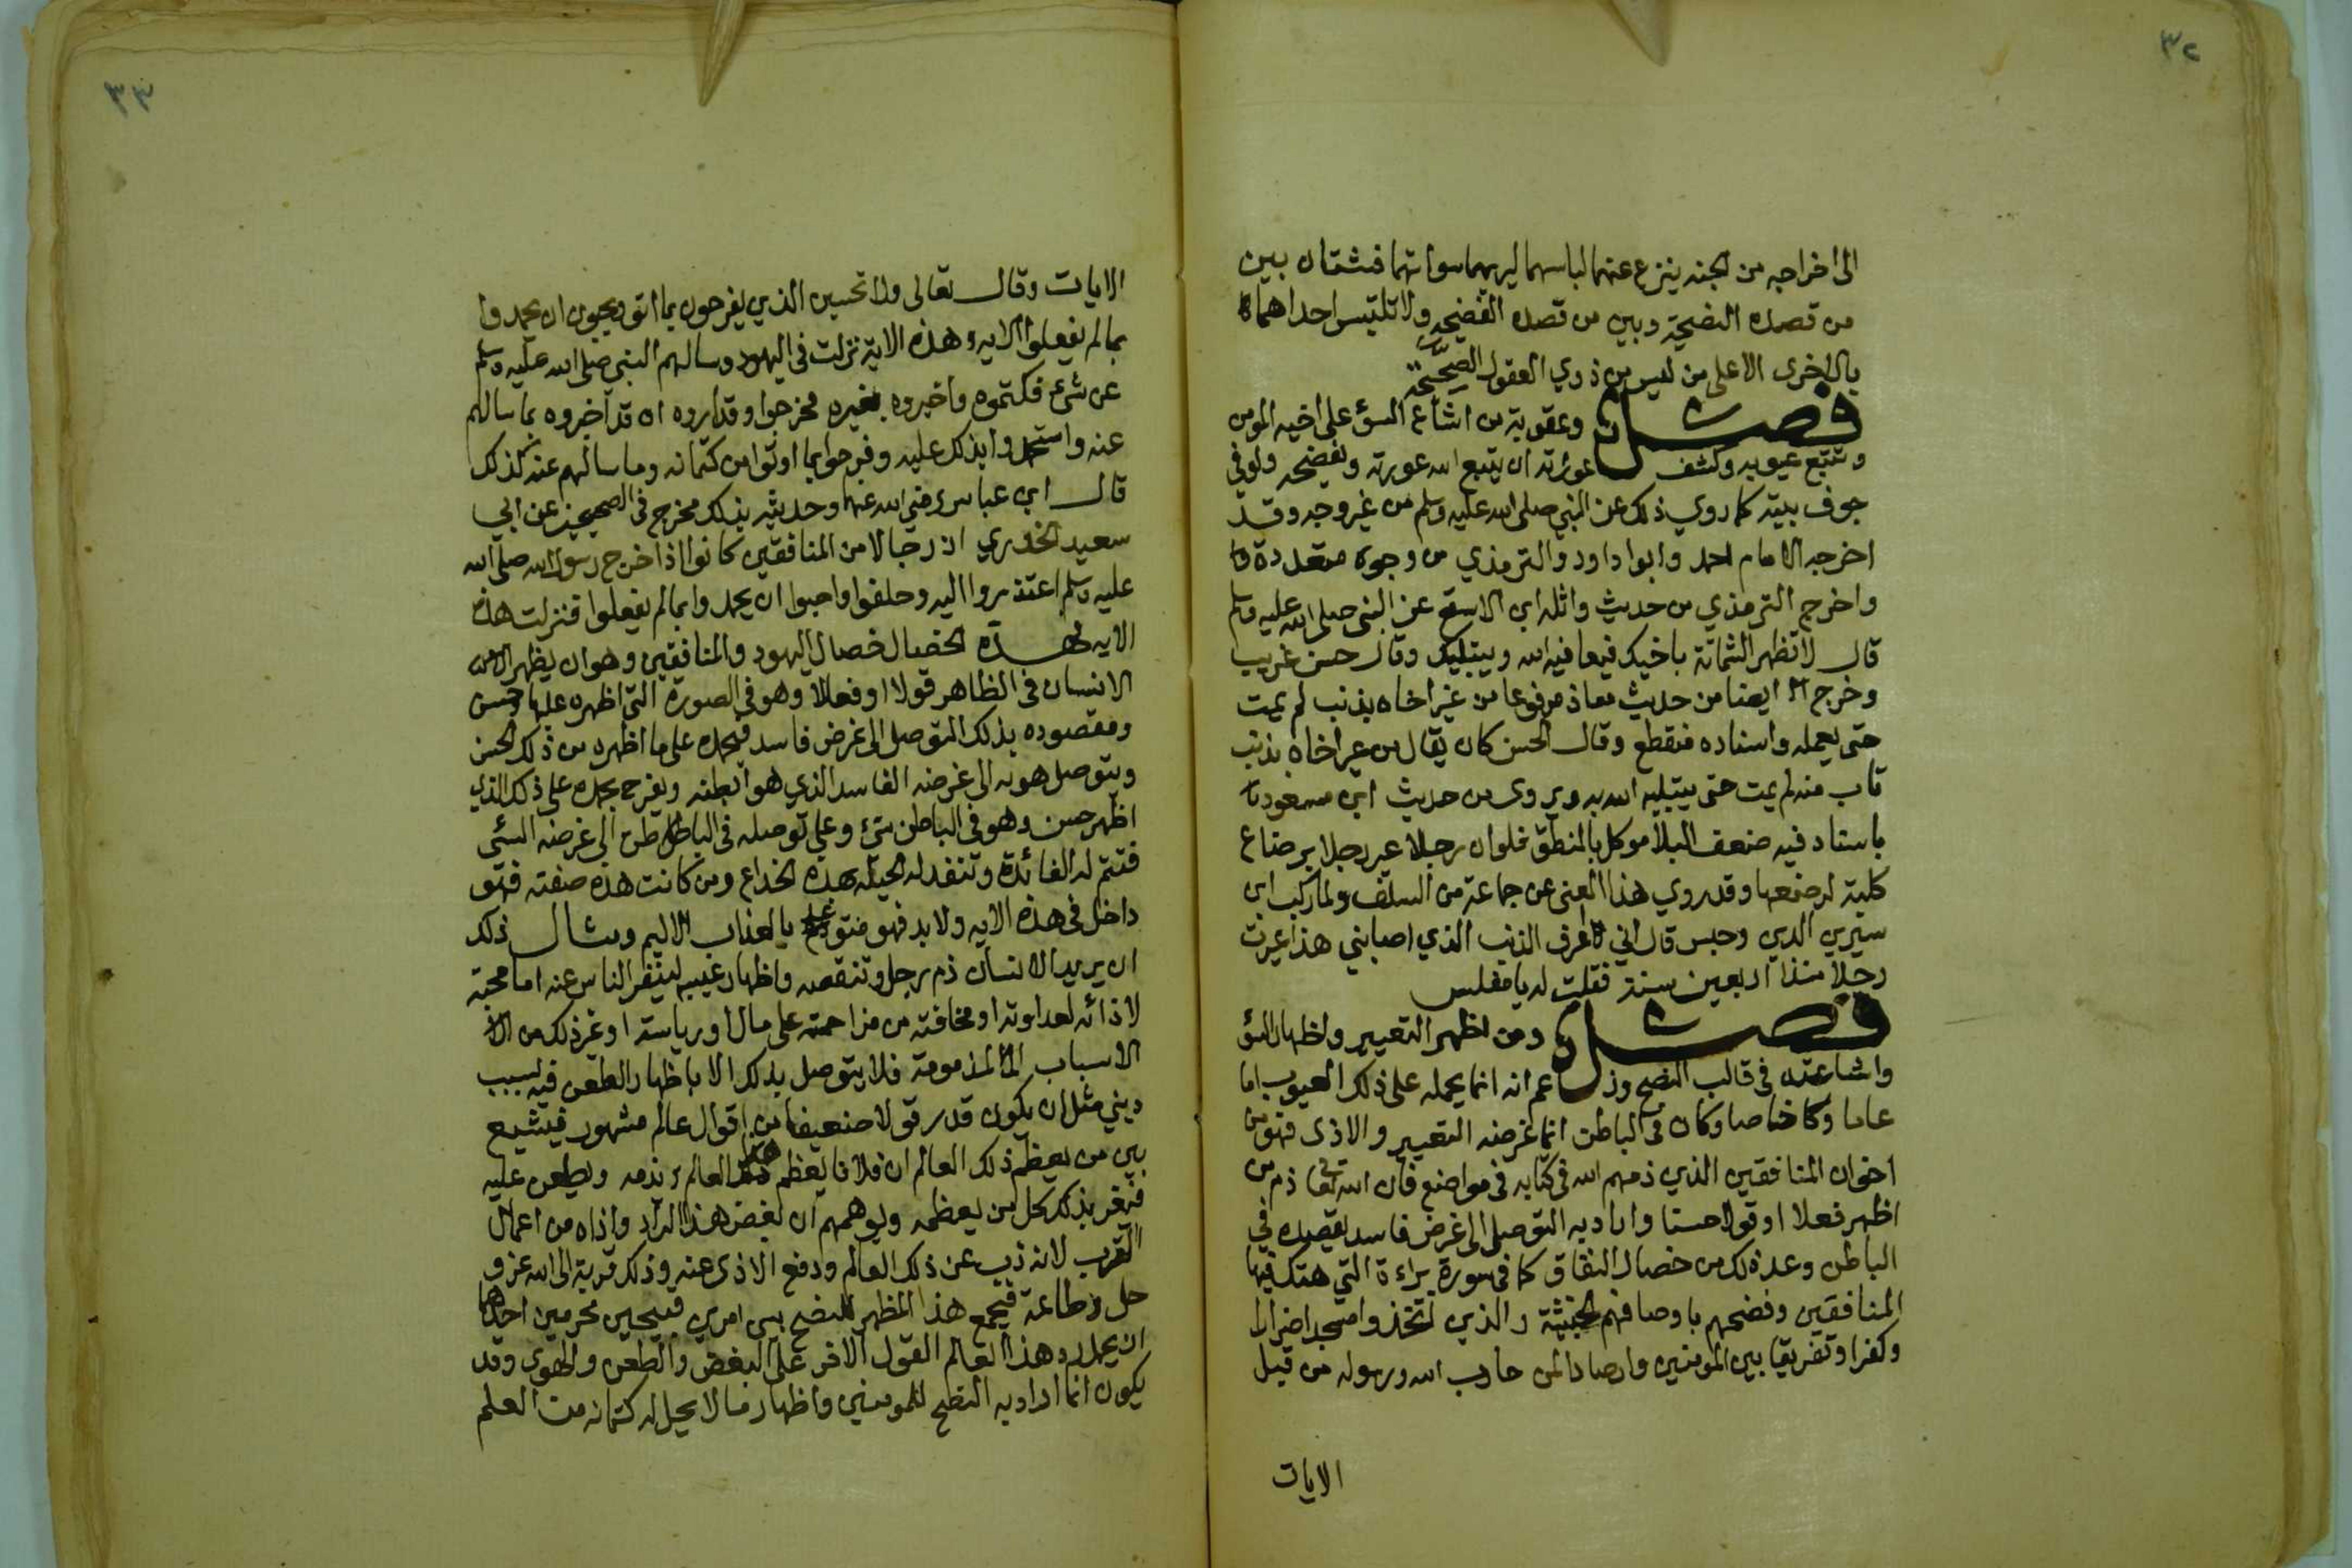 ٣٢
الى اخراجه من الجنه ينزع عنهما لباسهما ليريهما سواتهما فشتان بين
من قصده النضيحة وبين من قصده الفضيحه ولا تلتبس احداهما
بالاخرى الا على من ليس من ذوي العقول الصحيحة
فصل وعقوبة من اشاع السؤ على اخيه المومن
وتتبع عيوبه وكشف عوراته ان يتبع الله عورته ويفضحه ولو في
جوف بيته كما روي ذلك عن النبي صلى الله عليه وسلم من غير وجه وقد
اخرجه الامام احمد وابوا داود والترمذي من وجوه متعددة
واخرج الترمذي من حديث واثله ابن الاسقع عن النبي صلى الله عليه وسلم
قال لا تظهر الشماتة باخيك فيعافيه الله ويبتليك وقال حسن غريب
وخرج ايضا من حديث معاذ مرفوعا من غير اخاه بذنب لم يمت
حتى يعمله واسناده منقطع وقال الحسن كان يقال من عير اخاه بذنب
تاب منه لم يمت حتى يبتليه الله به ويروى من حديث ابن مسعود
باسناد فيه ضعف البلاء موكل بالمنطق فلو ان رجلا عير رجلا برضاع
كلبة لرضعها وقد روي هذا المعنى عن جماعة من السلف ولما ركب ابن
سيرين الدين وحبس قال اني لاعرف الذنب الذي اصابني هذا عيرت
رجلا منذ اربعين سنة فقلت له يا مفلس
فصل ومن اظهر التعيير واظهار السؤ
واشاعته في قالب النضح وزعم انه انما يحمله على ذلك العيوب اما
عاما وكا خاصا وكان في الباطن انما غرضه التعيير والاذى فهو من
اخوان المنافقين الذين ذمهم الله في كتابه في مواضع فان الله تعا ذم من
اظهر فعلا او قولا حسنا واراد به التوصل الى غرض فاسد يقصده في
الباطن وعد ذلك من خصال النفاق كما في سورة براءة التي هتك فيها
المنافقين وفضحهم باوصافهم الخبيثة والذين اتخذوا مسجدا ضرارا
وكفرا وتفريقا بين المومنين وارصادا لمن حارب الله ورسوله من قبل
الايات
٣٣
الايات وقال تعالى ولا تحسبن الذين يفرحون بما اتو ويحبون ان يحمدوا
بما لم يفعلوا الايه وهذه الاية نزلت في اليهود وسالهم النبي صلى الله عليه وسلم
عن شيء فكتموه واخبروه بغيره فخرجوا وقد اروه ان قد اخبروه بما سالهم
عنه واستحمدوا بذلك عليه وفرحوا بما اوتوا من كتمانه وما سالهم عنه كذلك
قال ابن عباس رضي الله عنهما وحديثه بذلك مخرج في الصحيحين عن ابي
سعيد الخدري ان رجالا من المنافقين كانوا اذا خرج رسول الله صلى الله
عليه وسلم اعتذروا اليه وحلفوا واحبوا ان يحمدوا بما لم يفعلوا فنزلت هذه
الايه فهذه الخصال خصال اليهود والمنافقين وهو ان يظهر
الانسان في الظاهر قولا او فعلا وهو في الصورة التي اظهره عليها حسن
ومقصوده بذلك التوصل الى غرض فاسد فيحمده على ما اظهره من ذلك الحسن
ويتوصل هو به الى غرضه الفاسد الذي هو ابطنه ويفرح بحمده على ذلك الذي
اظهر حسن وهو في الباطن سيء وعلى توصله في الباطل طن الى غرضه السئى
فتتم له الفائدة وتنفد له الحيله بهذه الخداع ومن كانت هذه صفته فهو
داخل في هذه الايه ولا بد فهو متوعد بالعذاب الاليم ومثال ذلك
ان يريد الانسان ذم رجل وتنقصه واظهار عيبه لينفر الناس عنه اما محبة
لاذائه لعداوته او مخافته من مزاحمته على مال او رياسة او غير ذلك من
الاسباب المذمومة فلا يتوصل بذلك الا باظهار الطعن فيه لسبب
ديني مثل ان يكون قد رد قولا ضعيفا من اقوال عالم مشهور فيشيع
بين من يعظم ذلك العالم ان فلانا يعظم هذا العالم ويذمه ويطعن عليه
فيغر بذلك كل من يعظمه ويوهمهم ان بغض هذا الراد واذاه من اعمال
القرب لانه ذب عن ذلك العالم ودفع الاذى عنه وذلك قربة الى الله عز و
جل وطاعة فيجمع هذا المظهر للنضح بين امرين قبيحين محرمين احدهما
ان يحمل رد هذا العالم القول الاخر على البغض والطعن والهوى وقد
يكون انما اراد به النضح للمومنين واظهار ما لا يحل له كتمانه من العلم